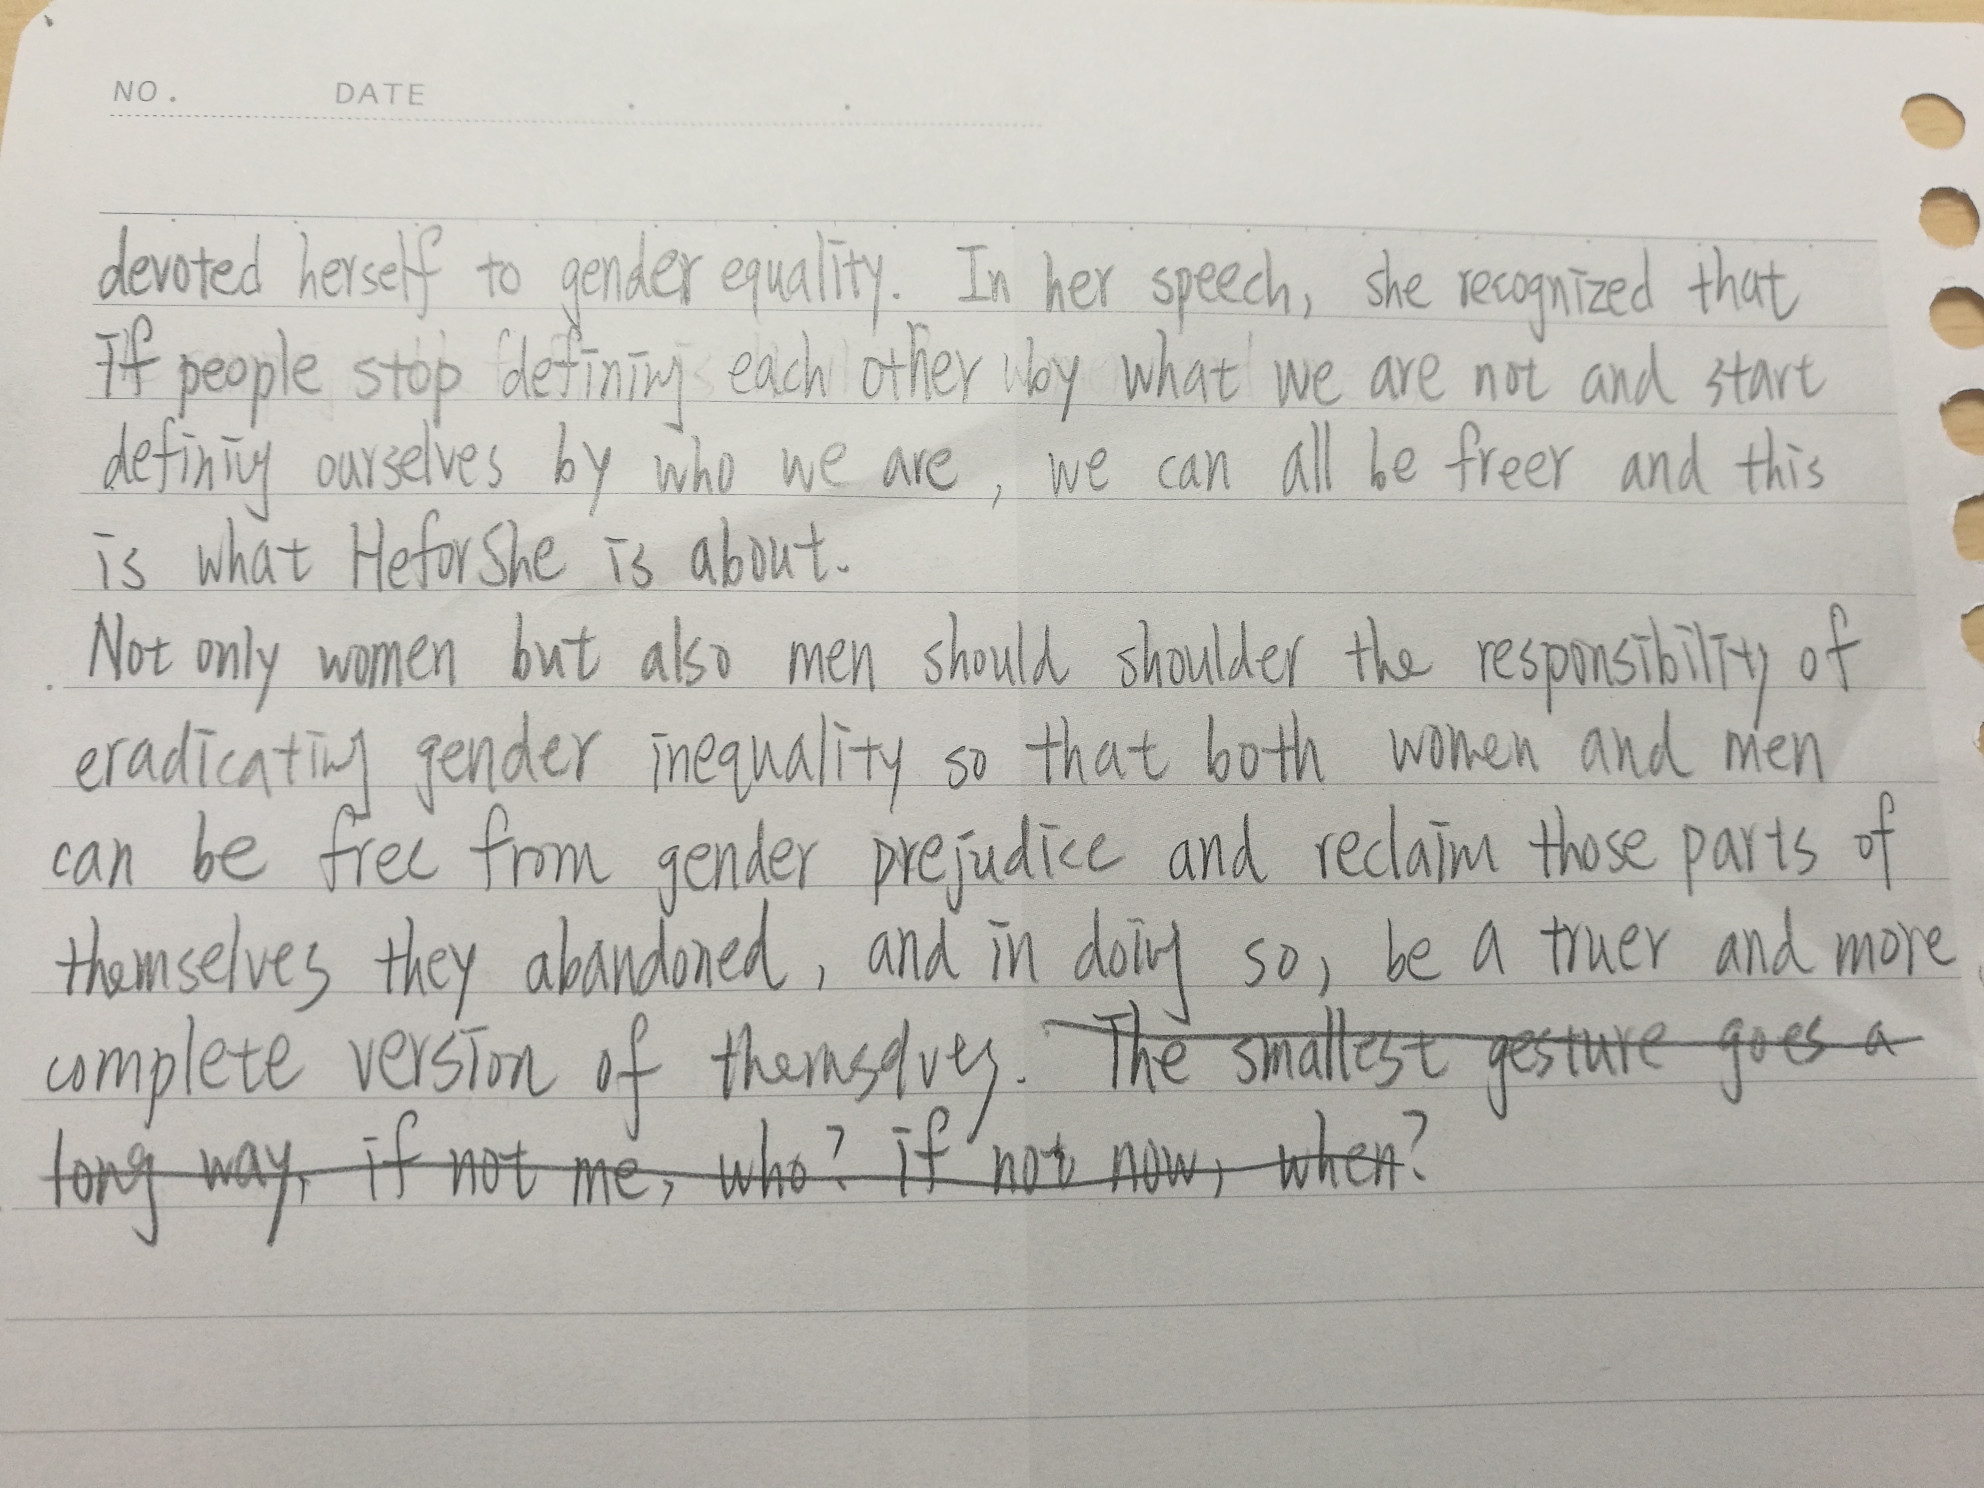 NO. DATE
devoted herself to gender equality. In her speech, she recognized that
if people stop defining each other by what we are not and start
defining ourselves by who we are, we can all be freer and this
is what HeforShe is about.
Not only women but also men should shoulder the responsibility of
eradicating gender inequality so that both women and men
can be free from gender prejudice and reclaim those parts of
themselves they abandoned, and in doing so, be a truer and more
complete version of themselves. The smallest gesture goes a
long way, if not me, who? if not now, when?